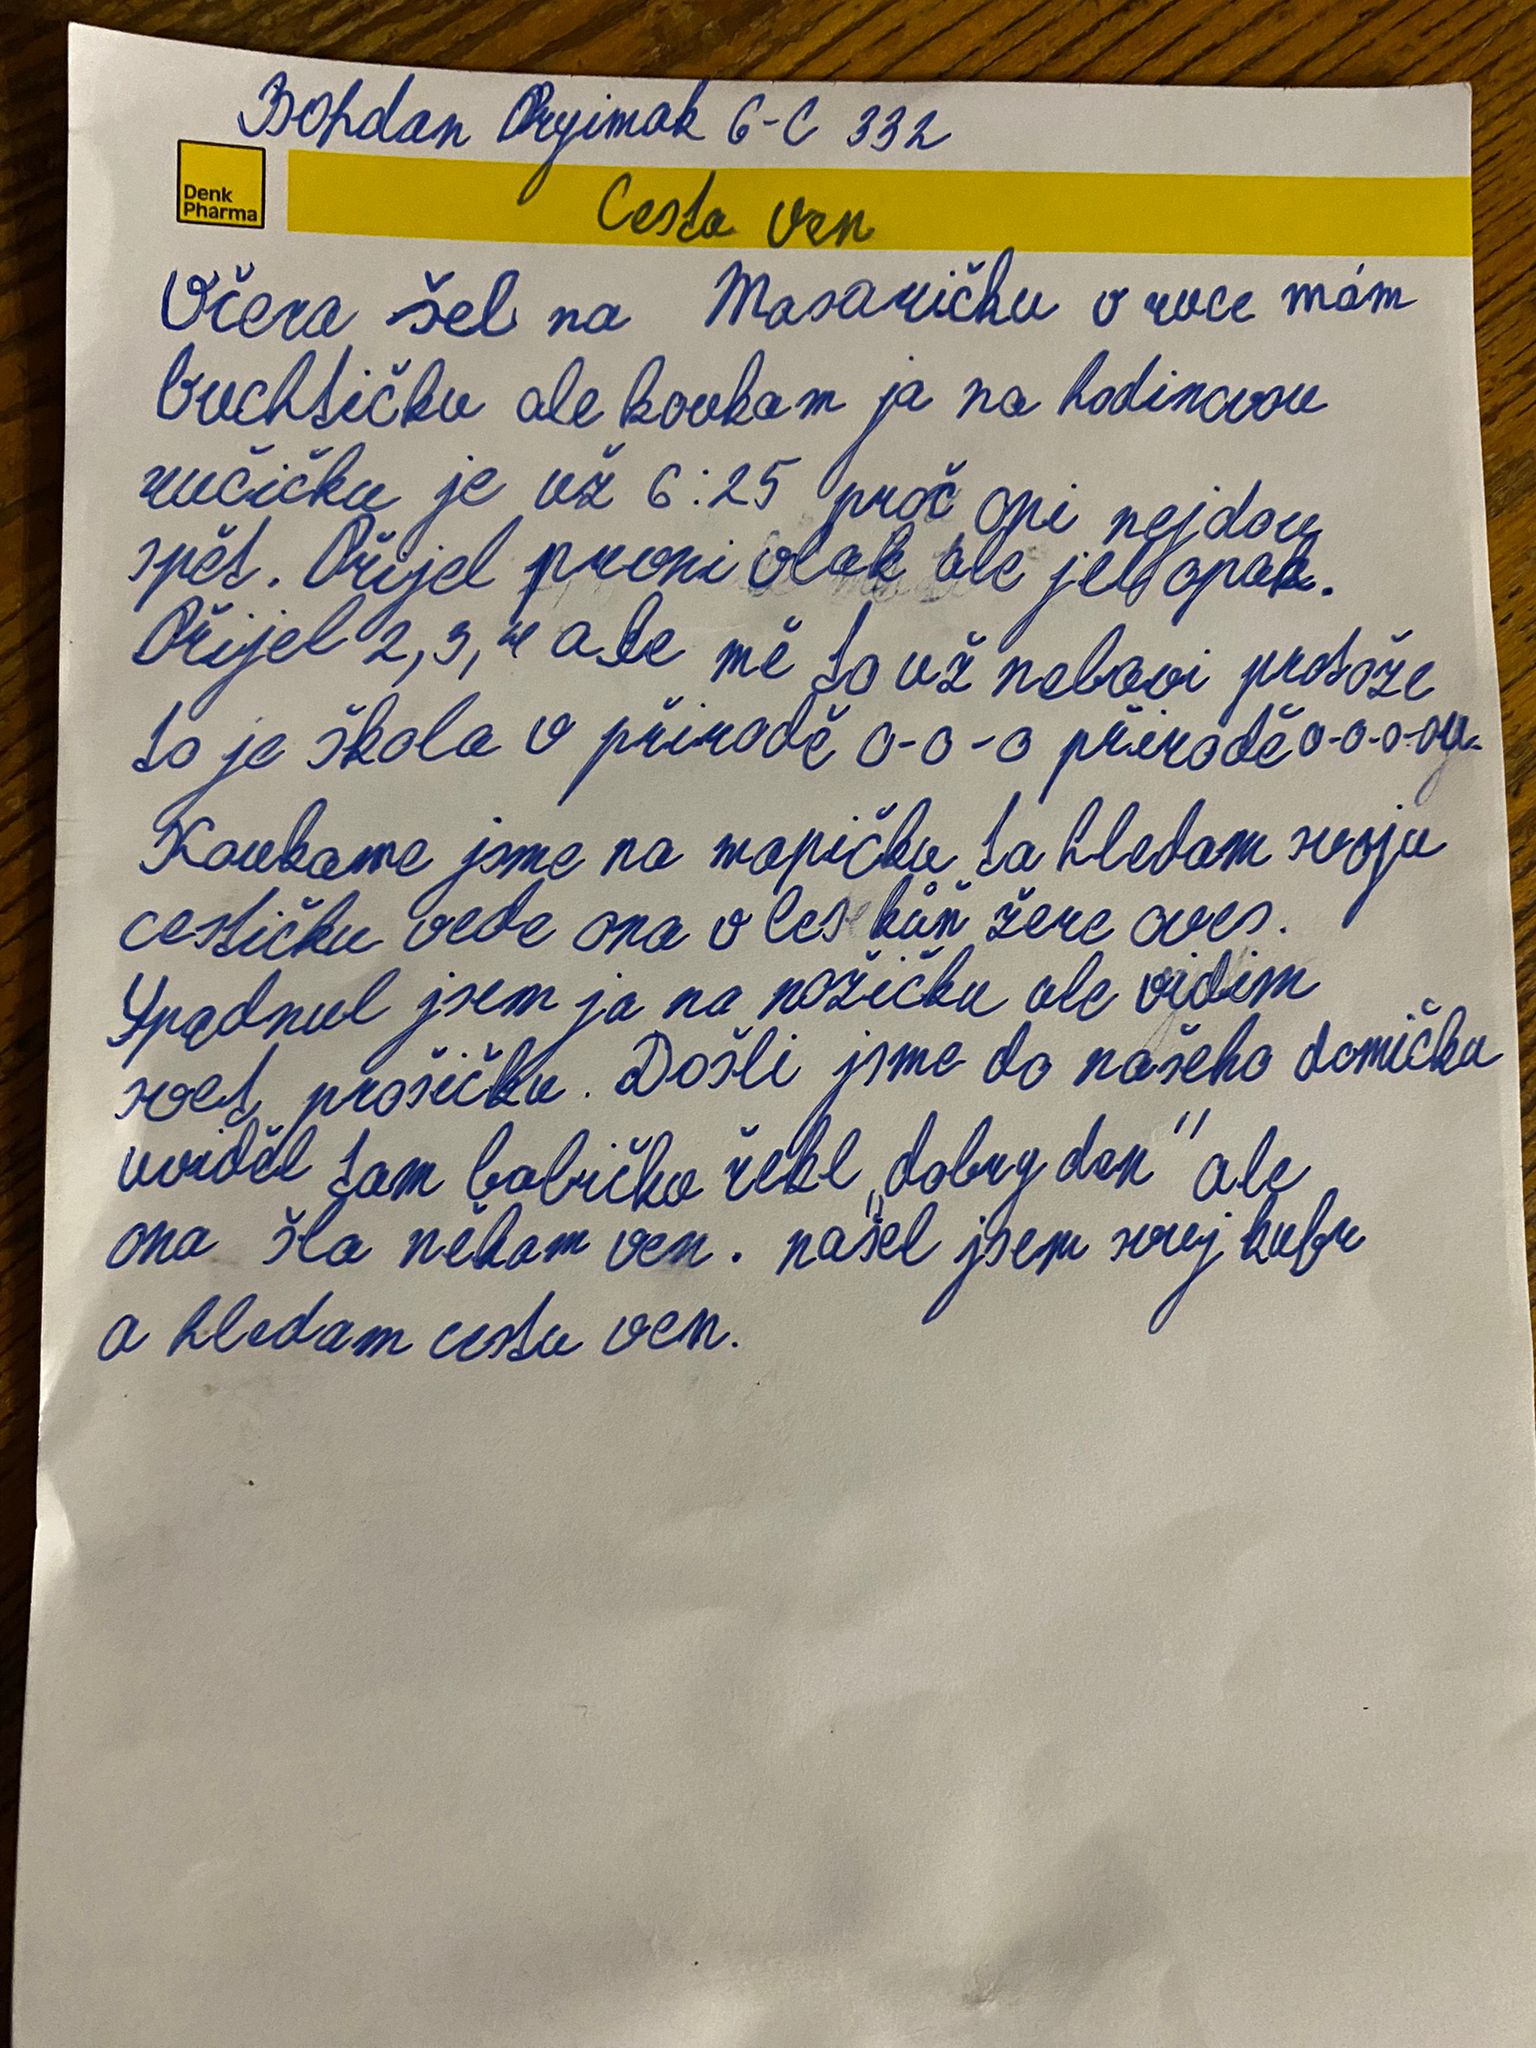 Bohdan Pryimak 6-C 332
Denk
Pharma
Cesta ven
Včera šel na Masaričku v ruce mám
buchtičku ale koukam ja na hodinovou
ručičku je už 6:25 proč oni nejdou
spět. Přijel proni vlak ale jeb opak.
Přijel 2, 3, 4 ale mě to už nebavi protože
to je škola v přirodě o-o-o přirodě o-o-o-oy.
Koukame jsme na mapičku ta hledam svoju
cestičku vede ona v les kůň žere oves.
Upadnul jsem ja na nožičku ale vidim
svet prošičku. Došli jsme do našeho domičku
uviděl tam babičku řekl „dobry den" ale
ona šla někam ven. našel jsem svej kufr
a hledam cestu ven.